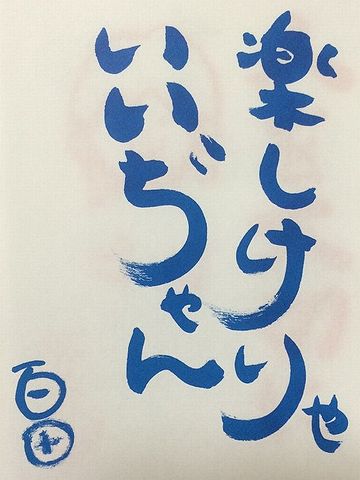 楽しけりゃ
いいぢゃん
百田